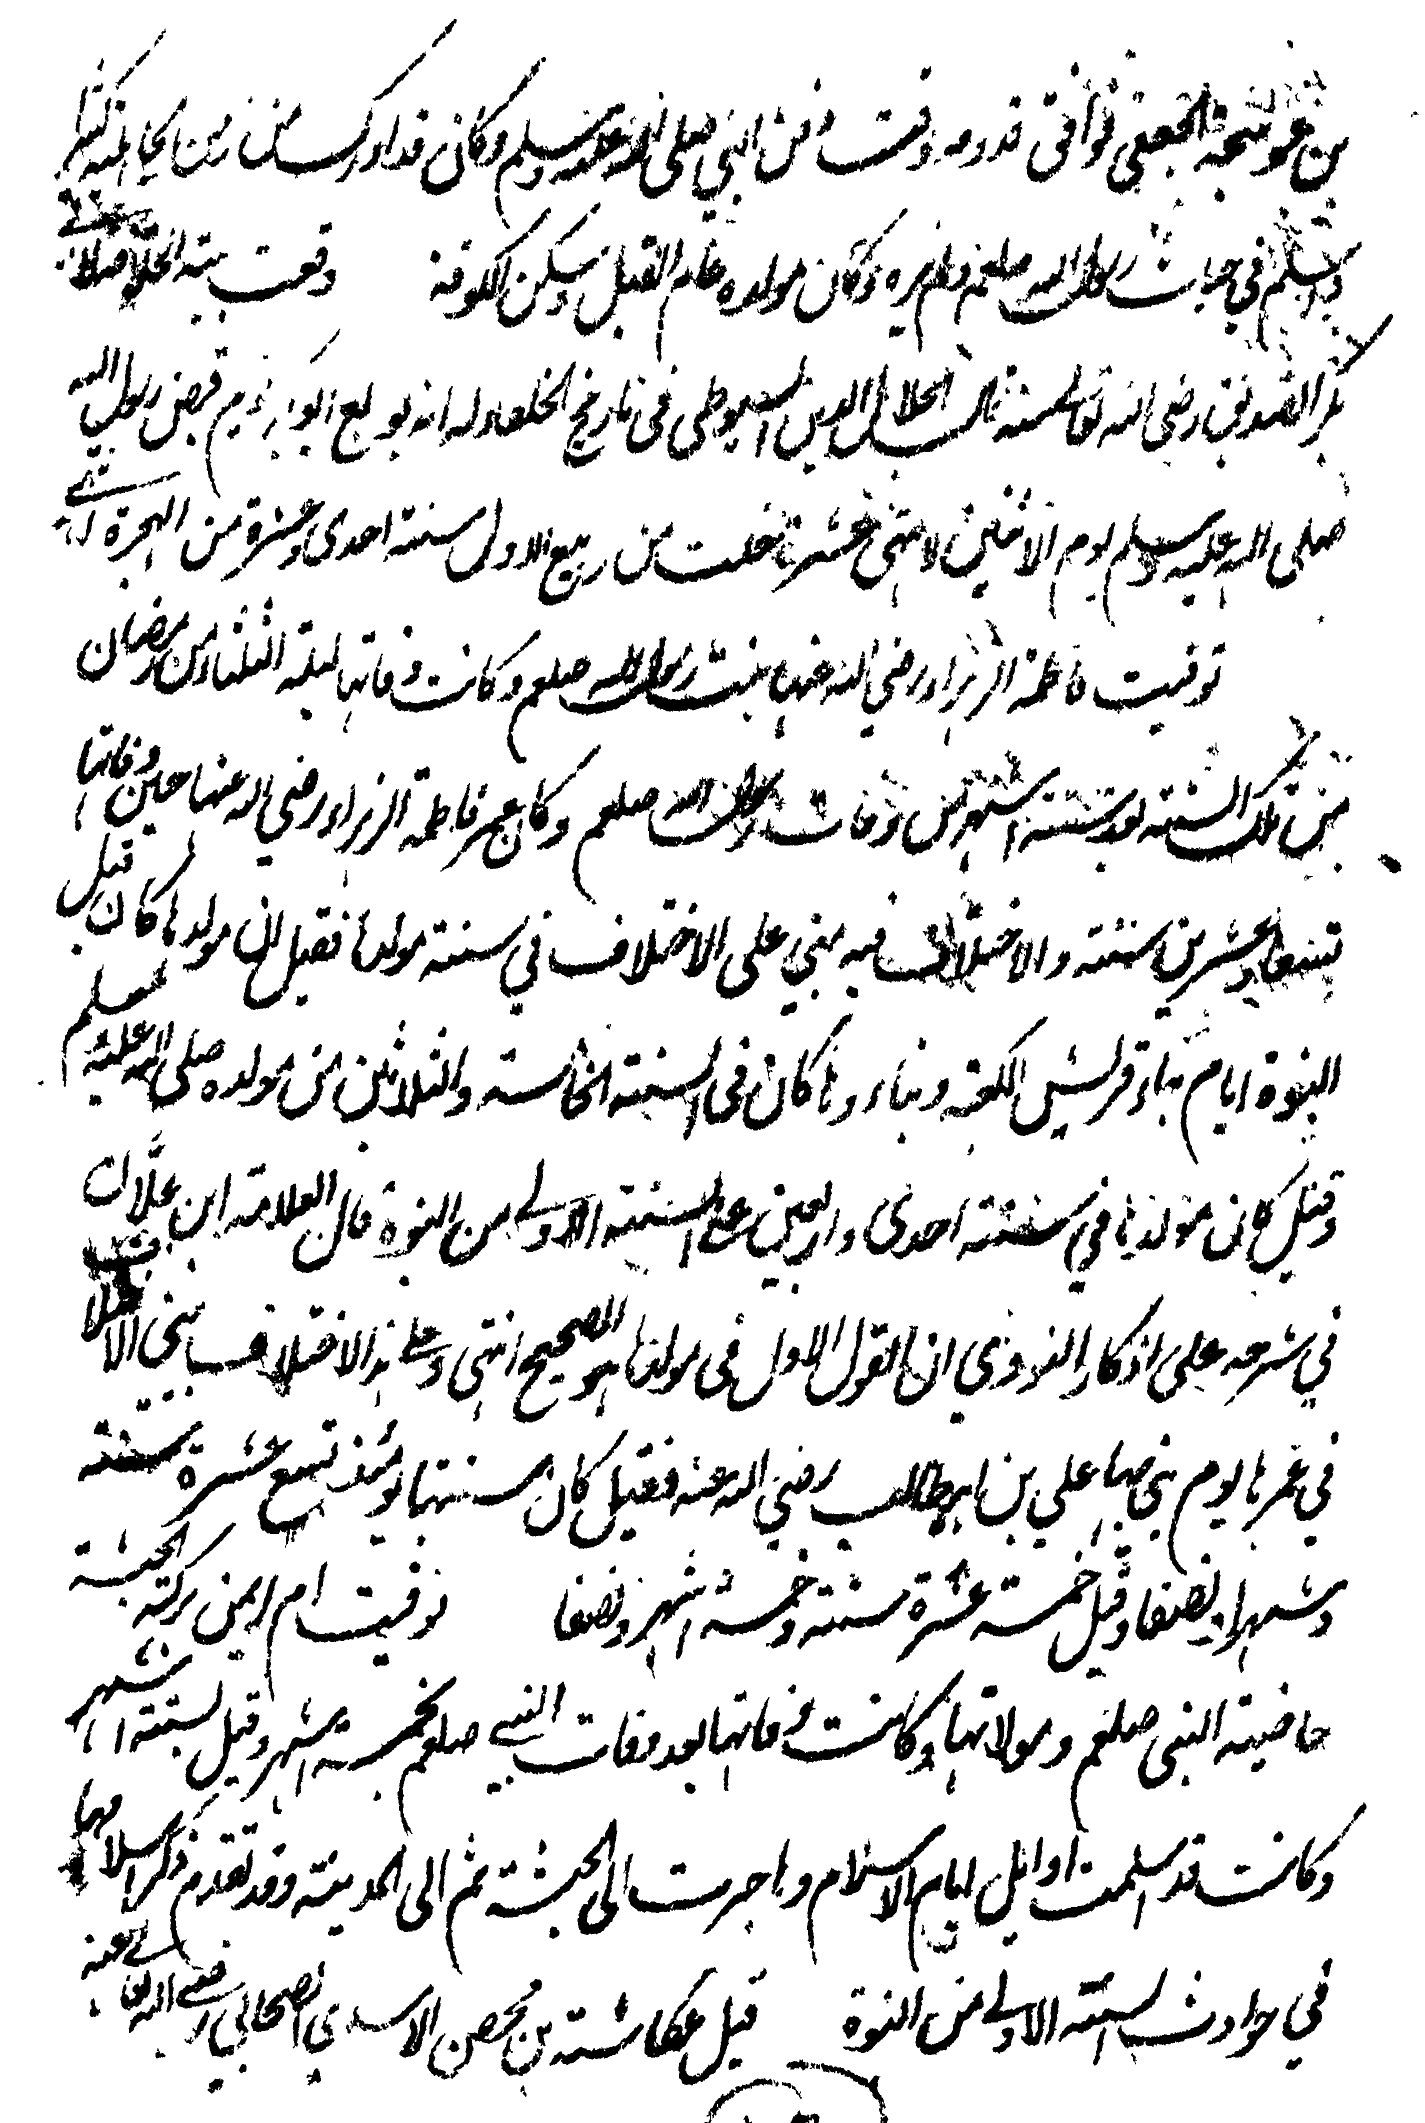 بن عوسجة الجعفي فوافق قدومه وقت دفن النبي صلى الله عليه وسلم وكان قد ادرك من زمن الجاهلية كثيرا
واسلم في حيات رسول الله صلعم ولم يره وكان مولده عام الفيل وسكن الكوفة وقعت بيعة الخلافة لابي
بكر الصديق رضي الله تعالى عنه قال الجلال الدين السيوطي في تاريخ الخلفاء له انه بويع ابو بكر يوم قبض رسول الله
صلى الله عليه وسلم يوم الاثنين لاثنتي عشرة خلت من ربيع الاول سنة احدى عشرة من الهجرة
توفيت فاطمة الزهراء رضي الله عنها بنت رسول الله صلعم وكانت وفاتها ليلة الثلثاء من رمضان
من تلك السنة بعد ستة اشهر من وفات رسول الله صلعم وكان عمر فاطمة الزهراء رضي الله عنها حين وفاتها
تسعا وعشرين سنة والاختلاف فيه مبني على الاختلاف في سنة مولدها فقيل ان مولدها كان قبل
النبوة ايام بناء قريش الكعبة وبناءها كان في السنة الخامسة والثلاثين من مولده صلى الله عليه وسلم
وقيل كان مولدها في سنة احدى واربعين على السنة الاولى من النبوة قال العلامة ابن علان
في شرحه على اذكار النووي ان القول الاول في مولدها هو الصحيح انتهى وعلى هذا الاختلاف ينبني الاختلاف
في عمرها يوم بنى بها علي بن ابيطالب رضي الله عنه فقيل كان سنها يومئذ تسع عشرة سنة
وشهرا ونصفا وقيل خمسة عشرة سنة وخمسة اشهر ونصفا توفيت ام ايمن بركة الحبشية
حاضنة النبي صلعم ومولاتها وكانت وفاتها بعد وفات النبي صلعم بخمسة اشهر وقيل بستة اشهر
وكانت قد اسلمت اوائل ايام الاسلام وهاجرت الى الحبشة ثم الى المدينة وقد تقدم ذكر اسلامها
في حوادث السنة الاولى من النبوة قتل عكاشة بن محصن الاسدي الصحابي رضي الله تعالى عنه